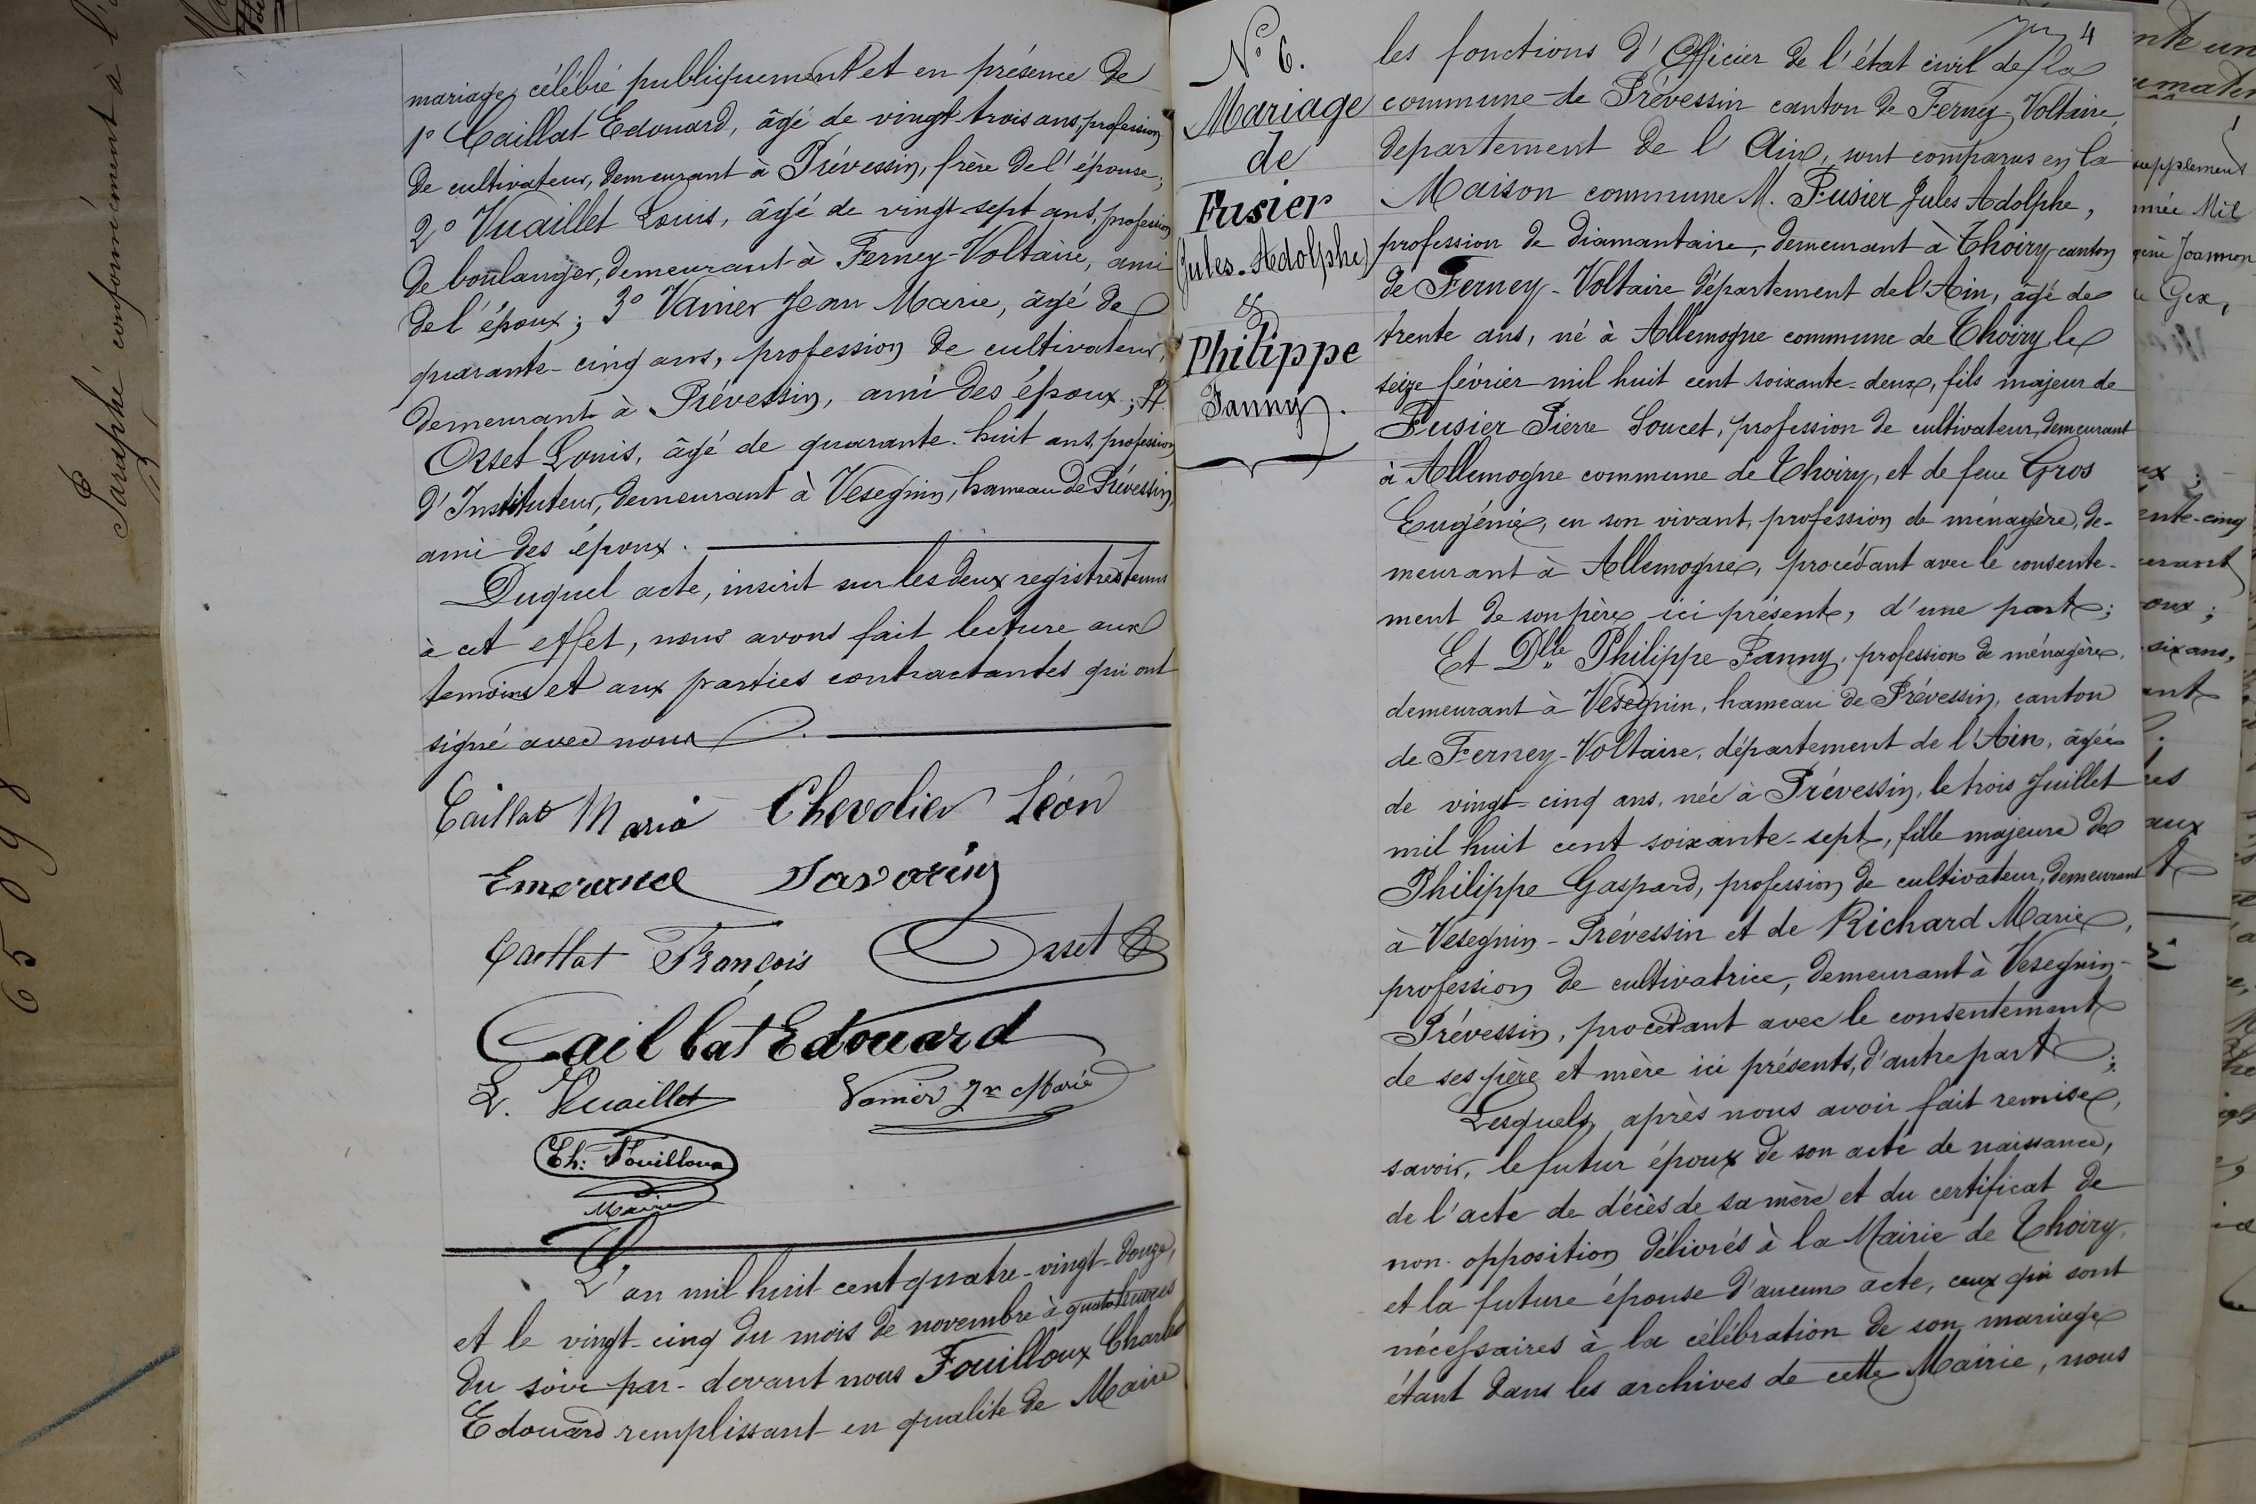 mariage, célébré publiquement et en présence de
1º Caillat Edouard, âgé de vingt-trois ans, profession
de cultivateur, demeurant à Prévessin, frère de l'épouse;
2º Vuaillet Louis, âgé de vingt-sept ans, profession
de boulanger, demeurant à Ferney-Voltaire, ami
de l'époux; 3º Vanier Jean Marie, âgé de
quarante-cinq ans, profession de cultivateur,
demeurant à Prévessin, ami des époux; 4º
Osset Louis, âgé de quarante-huit ans, profession
d'Instituteur, demeurant à Vesegnin, hameau de Prévessin,
ami des époux.
Duquel acte, inscrit sur les deux registres tenus
à cet effet, nous avons fait lecture aux
temoins et aux parties contractantes qui ont
signé avec nous.
Caillat Maria Chevolier Léon
Emerance Savarin
Caillat François Osset
Caillat Edouard
L. Vuaillet Vanier Jn Marie
Ch: Fouilloux
Maire
L'an mil huit cent quatre-vingt-douze,
et le vingt-cinq du mois de novembre à quatre heures
du soir par-devant nous Fouilloux Charles
Edouard remplissant en qualité de Maire
Nº 6.
Mariage
de
Fusier
Jules-Adolphe
&
Philippe
Fanny.
4
les fonctions d'Officier de l'état civil de la
commune de Prévessin canton de Ferney-Voltaire,
departement de l'Ain, sont comparus en la
Maison commune M. Fusier Jules Adolphe,
profession de diamantaire, demeurant à Thoiry canton
de Ferney-Voltaire département de l'Ain, âgé de
trente ans, né à Allemogne commune de Thoiry le
seize février mil huit cent soixante-deux, fils majeur de
Fusier Pierre Loucet, profession de cultivateur, demeurant
à Allemogne commune de Thoiry, et de feue Gros
Eugénie, en son vivant, profession de ménagère, de-
meurant à Allemogne, procédant avec le consente-
ment de son père ici présent, d'une part;
Et Dlle Philippe Fanny, profession de ménagère,
demeurant à Vesegnin, hameau de Prévessin, canton
de Ferney-Voltaire, département de l'Ain, âgée
de vingt-cinq ans, née à Prévessin, le trois Juillet
mil huit cent soixante-sept, fille majeure de
Philippe Gaspard, profession de cultivateur, demeurant
à Vesegnin-Prévessin et de Richard Marie,
profession de cultivatrice, demeurant à Vesegnin-
Prévessin, procédant avec le consentement
de ses père et mère ici présents, d'autre part;
Lesquels, après nous avoir fait remise,
savoir, le futur époux de son acte de naissance,
de l'acte de décès de sa mère et du certificat de
non-opposition délivrés à la Mairie de Thoiry,
et la future épouse d'aucun acte, ceux qui sont
nécessaires à la célébration de son mariage
étant dans les archives de cette Mairie, nous
Paraphé conformément à l'
65098
supplement
Joannon
Gex,
ente-cinq
six ans,
aux